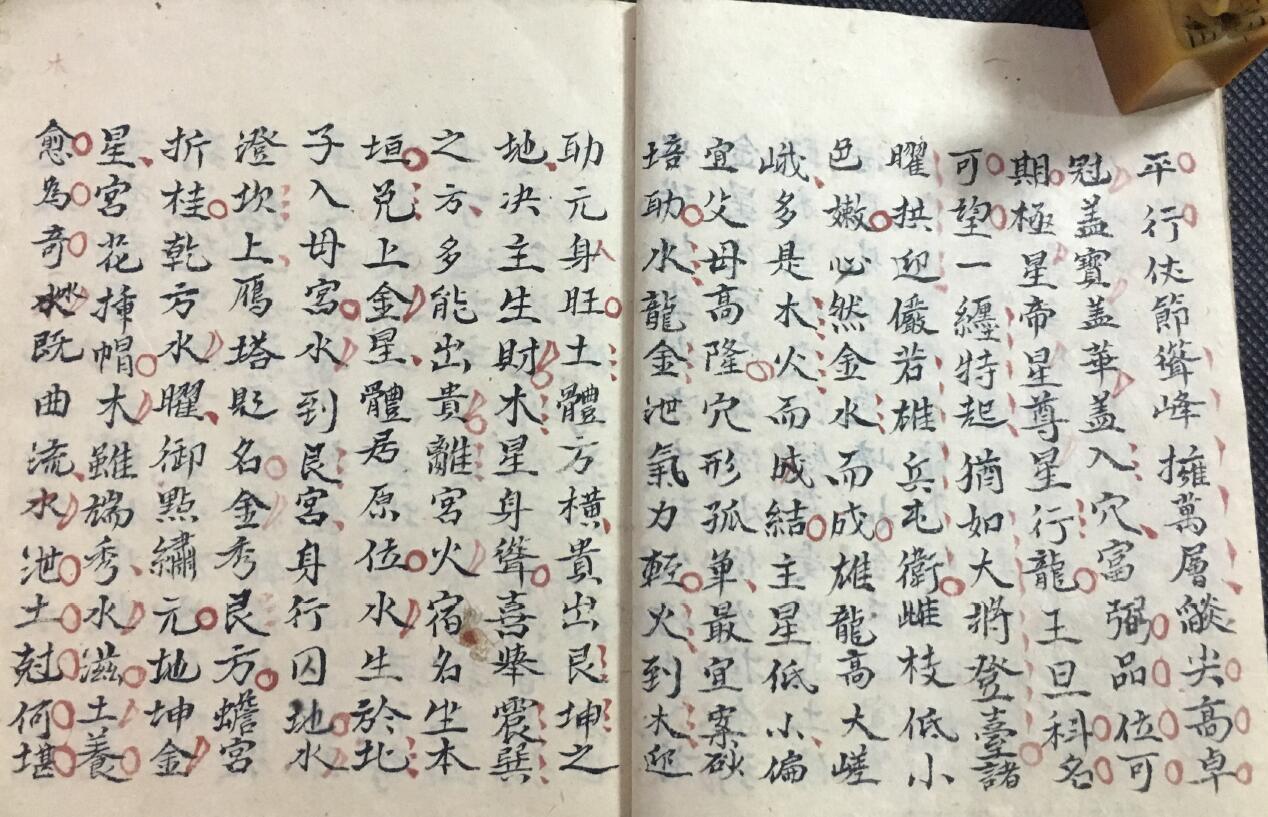 平行伏節聳峰擁萬層燄尖高卓
冠盖寶盖華盖入穴富弼品位可
期極星帝星尊星行龍王旦科名
可望一纏特起猶如大將登臺諸
曜拱迎儼若雄兵屯衛雌枝低小
色嫩必然金水而成雄龍高大嵯
峨多是木火而成結主星低小偏
宜父母高隆穴形孤单最宜案砂
培助水龍金泄氣力輕火到木迎
助元身旺土體方橫貴出艮坤之
地决主生財木星身聳喜舉震巽
之方多能出貴離宮火宿名坐本
垣兑上金星體居原位水生於北
子入母宮水到艮宮身行囚地水
澄坎上鴈塔題名金秀艮方蟾宮
折桂乾方水曜御點繡元地坤金
星宮花揷帽木雖端秀水滋土養
愈為奇妙水既曲流水泄土尅何堪
木